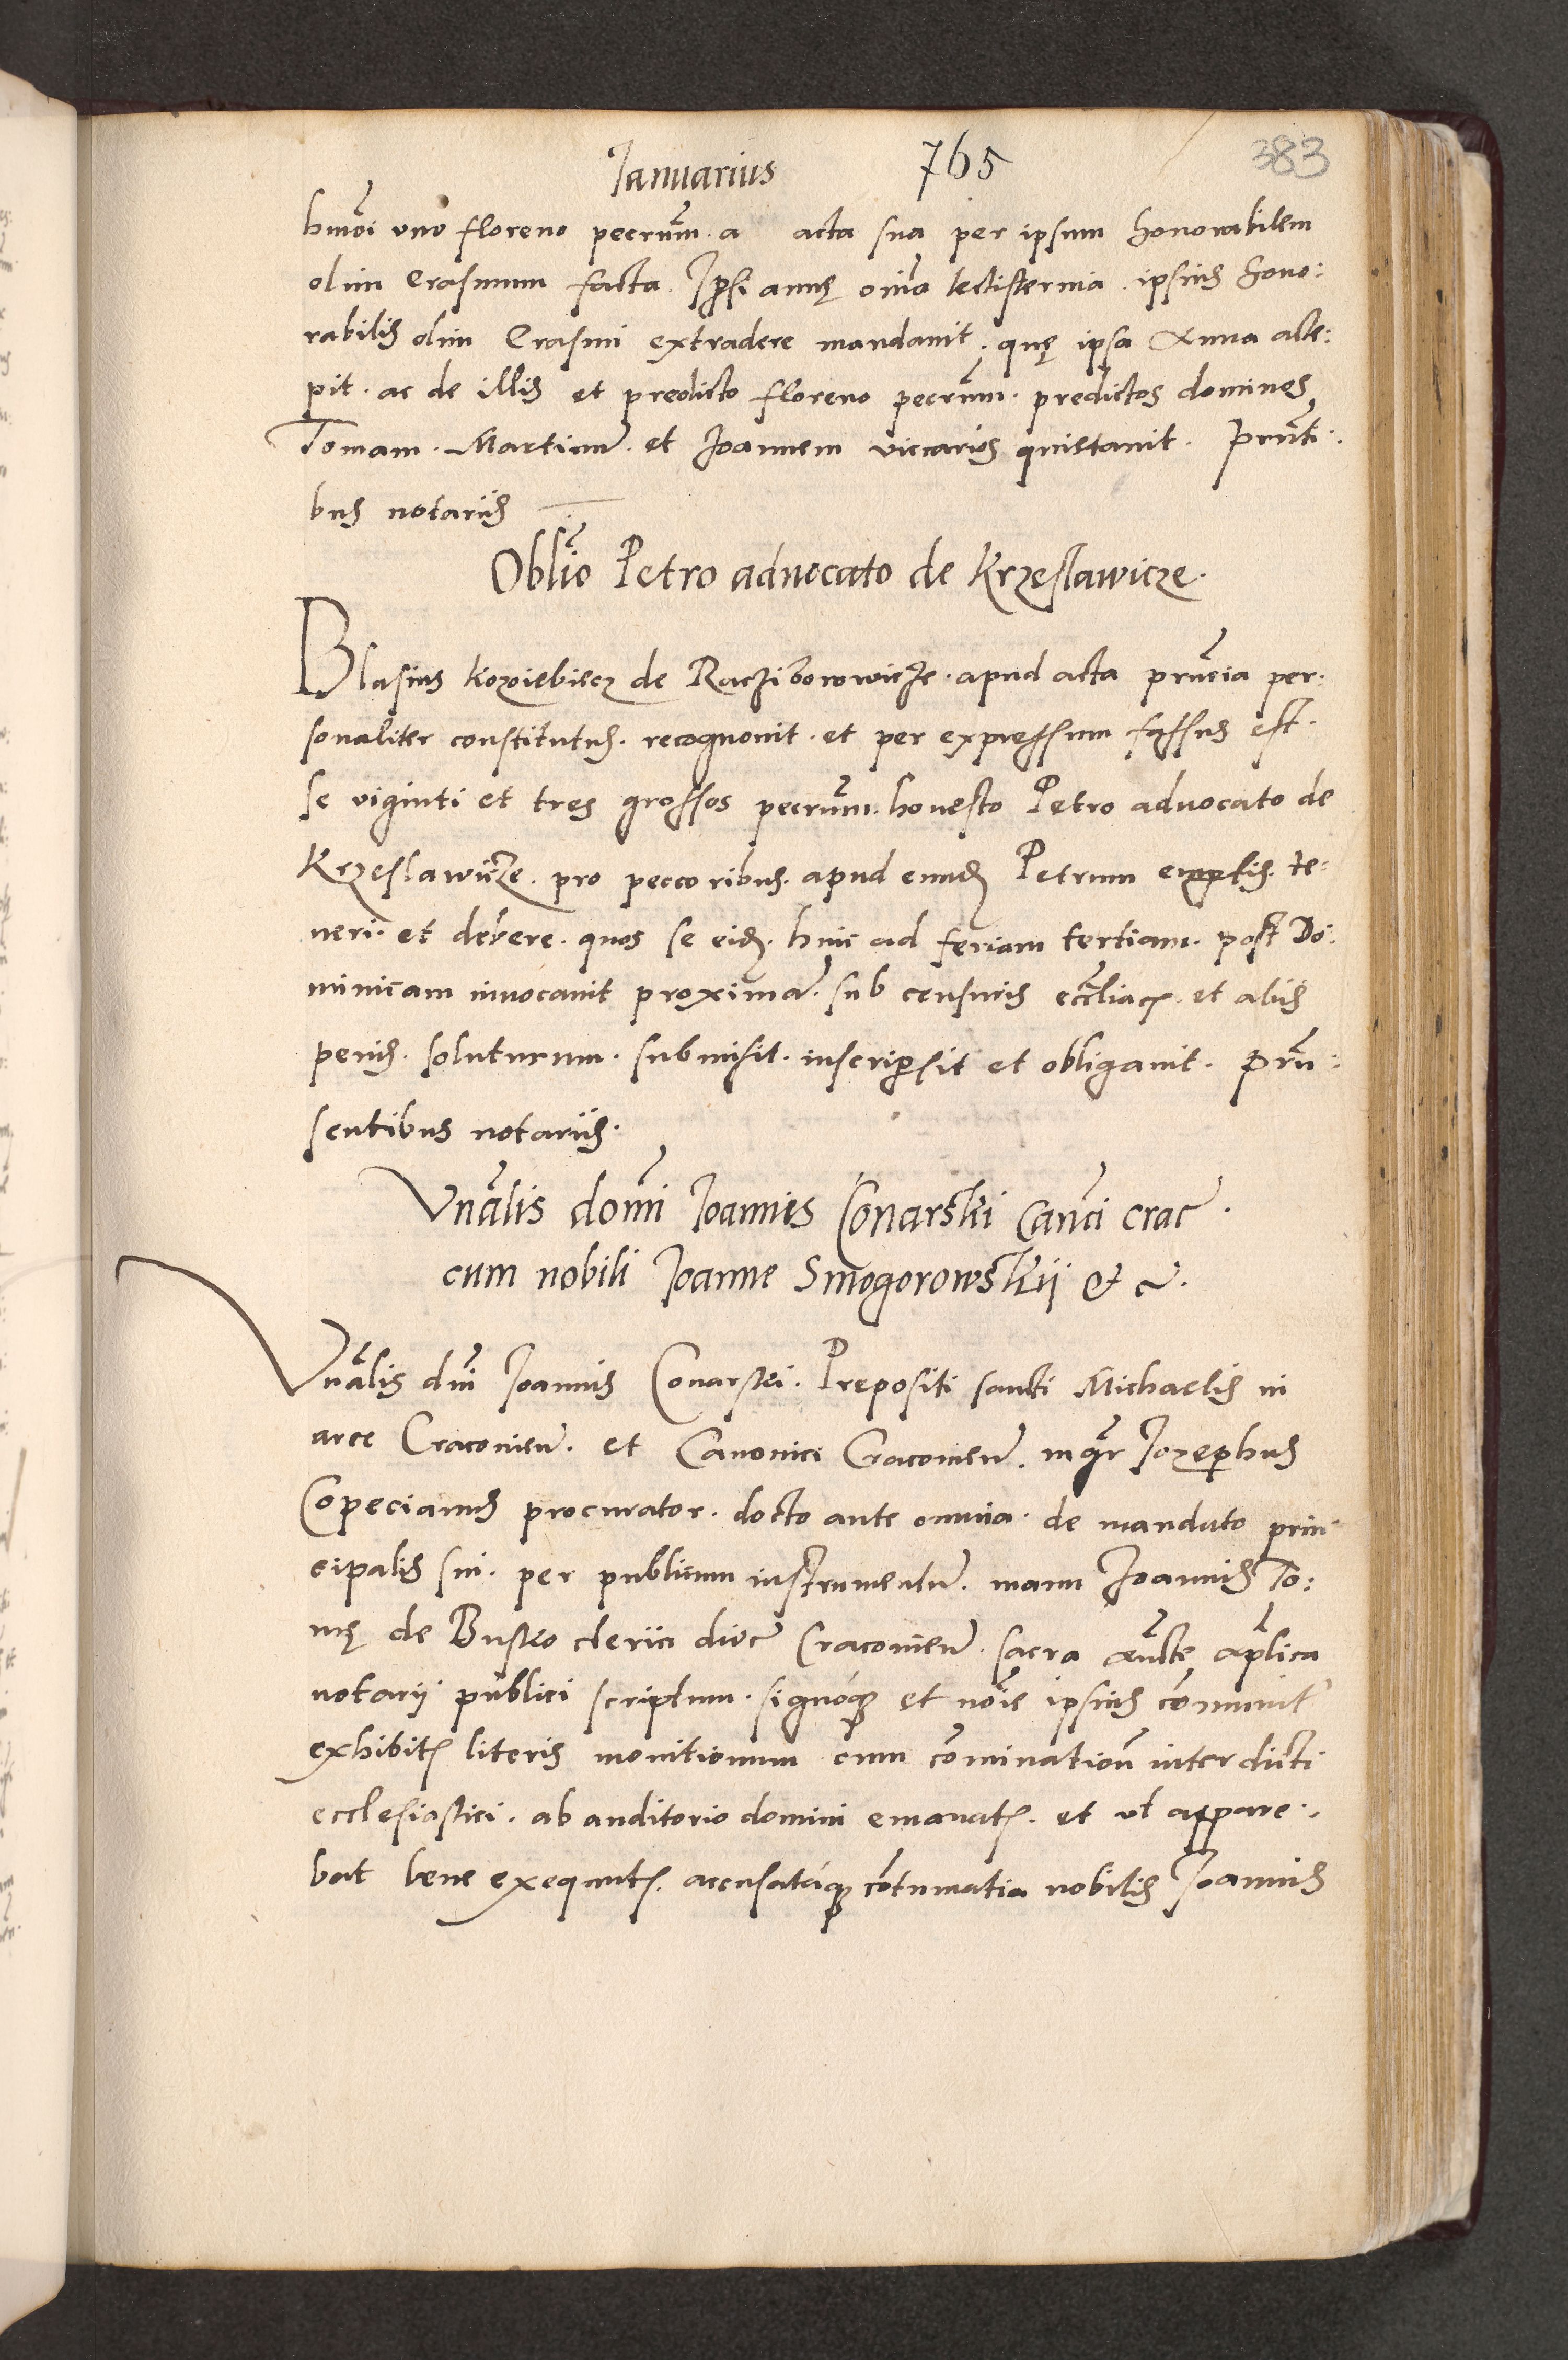 Januarius 765 383
hmōi uno floreno pecrūm. a acta sua per ipsum honorabilem
olim Erasmum facta. Ipsi annę oīna lectisternia. ipsius hono:
rabilis olim Erasmi extradere mandavit. quę ipsa Anna acce:
pit. ac de illis et predicto floreno pecrūm. predictos dominos
Tomam. Martinū. et Joannem viccarios quietavit. Prnti:
bus notariis
Oblīo Petro advocato de Krzeslawicze.
Blasius koziebiecz de Racziborowicze. apud acta prnēia per:
sonaliter constitutus. recognovit. et per expressum fassus est.
se viginti et tres grossos pecrūm. honesto Petro advocato de
Krzeslawicze. pro peccoribus. apud eundē Petrum emptis. te:
neri. et debere. quos se eidē. hinc ad feriam tertiam. post Do:
minicam invocavit proximā. sub censuris ecclīacis. et aliis
penis. soluturum. submisit. inscripsit et obligavit. prn:
sentibus notariis.
Vnālis domī Joannis Conarski Canci crac.
cum nobili Joanne Smogorowskij & c.
Vnālis dnī Joannis Conarski. Prepositi sancti Michaelis in
arce Cracovien̄. et Canonici Cracovien̄. mgr Jozephus
Copecianus procurator. docto ante omnia. de mandato prin
cipalis sui. per publicum instrumentū. manu Joannis To:
mę de Busko clerici dioc̄ Cracovien̄. sacra aūcte aplica
notarij publici scriptum. signóq; et nōie ipsius cōmunit
exhibitis literis monitionum cum cōminationē interdicti
ecclesiastici. ab auditorio domini emanatis. et ut appare:
bat bene exequutis. accusatáq; cōtumatia nobilis Joannis